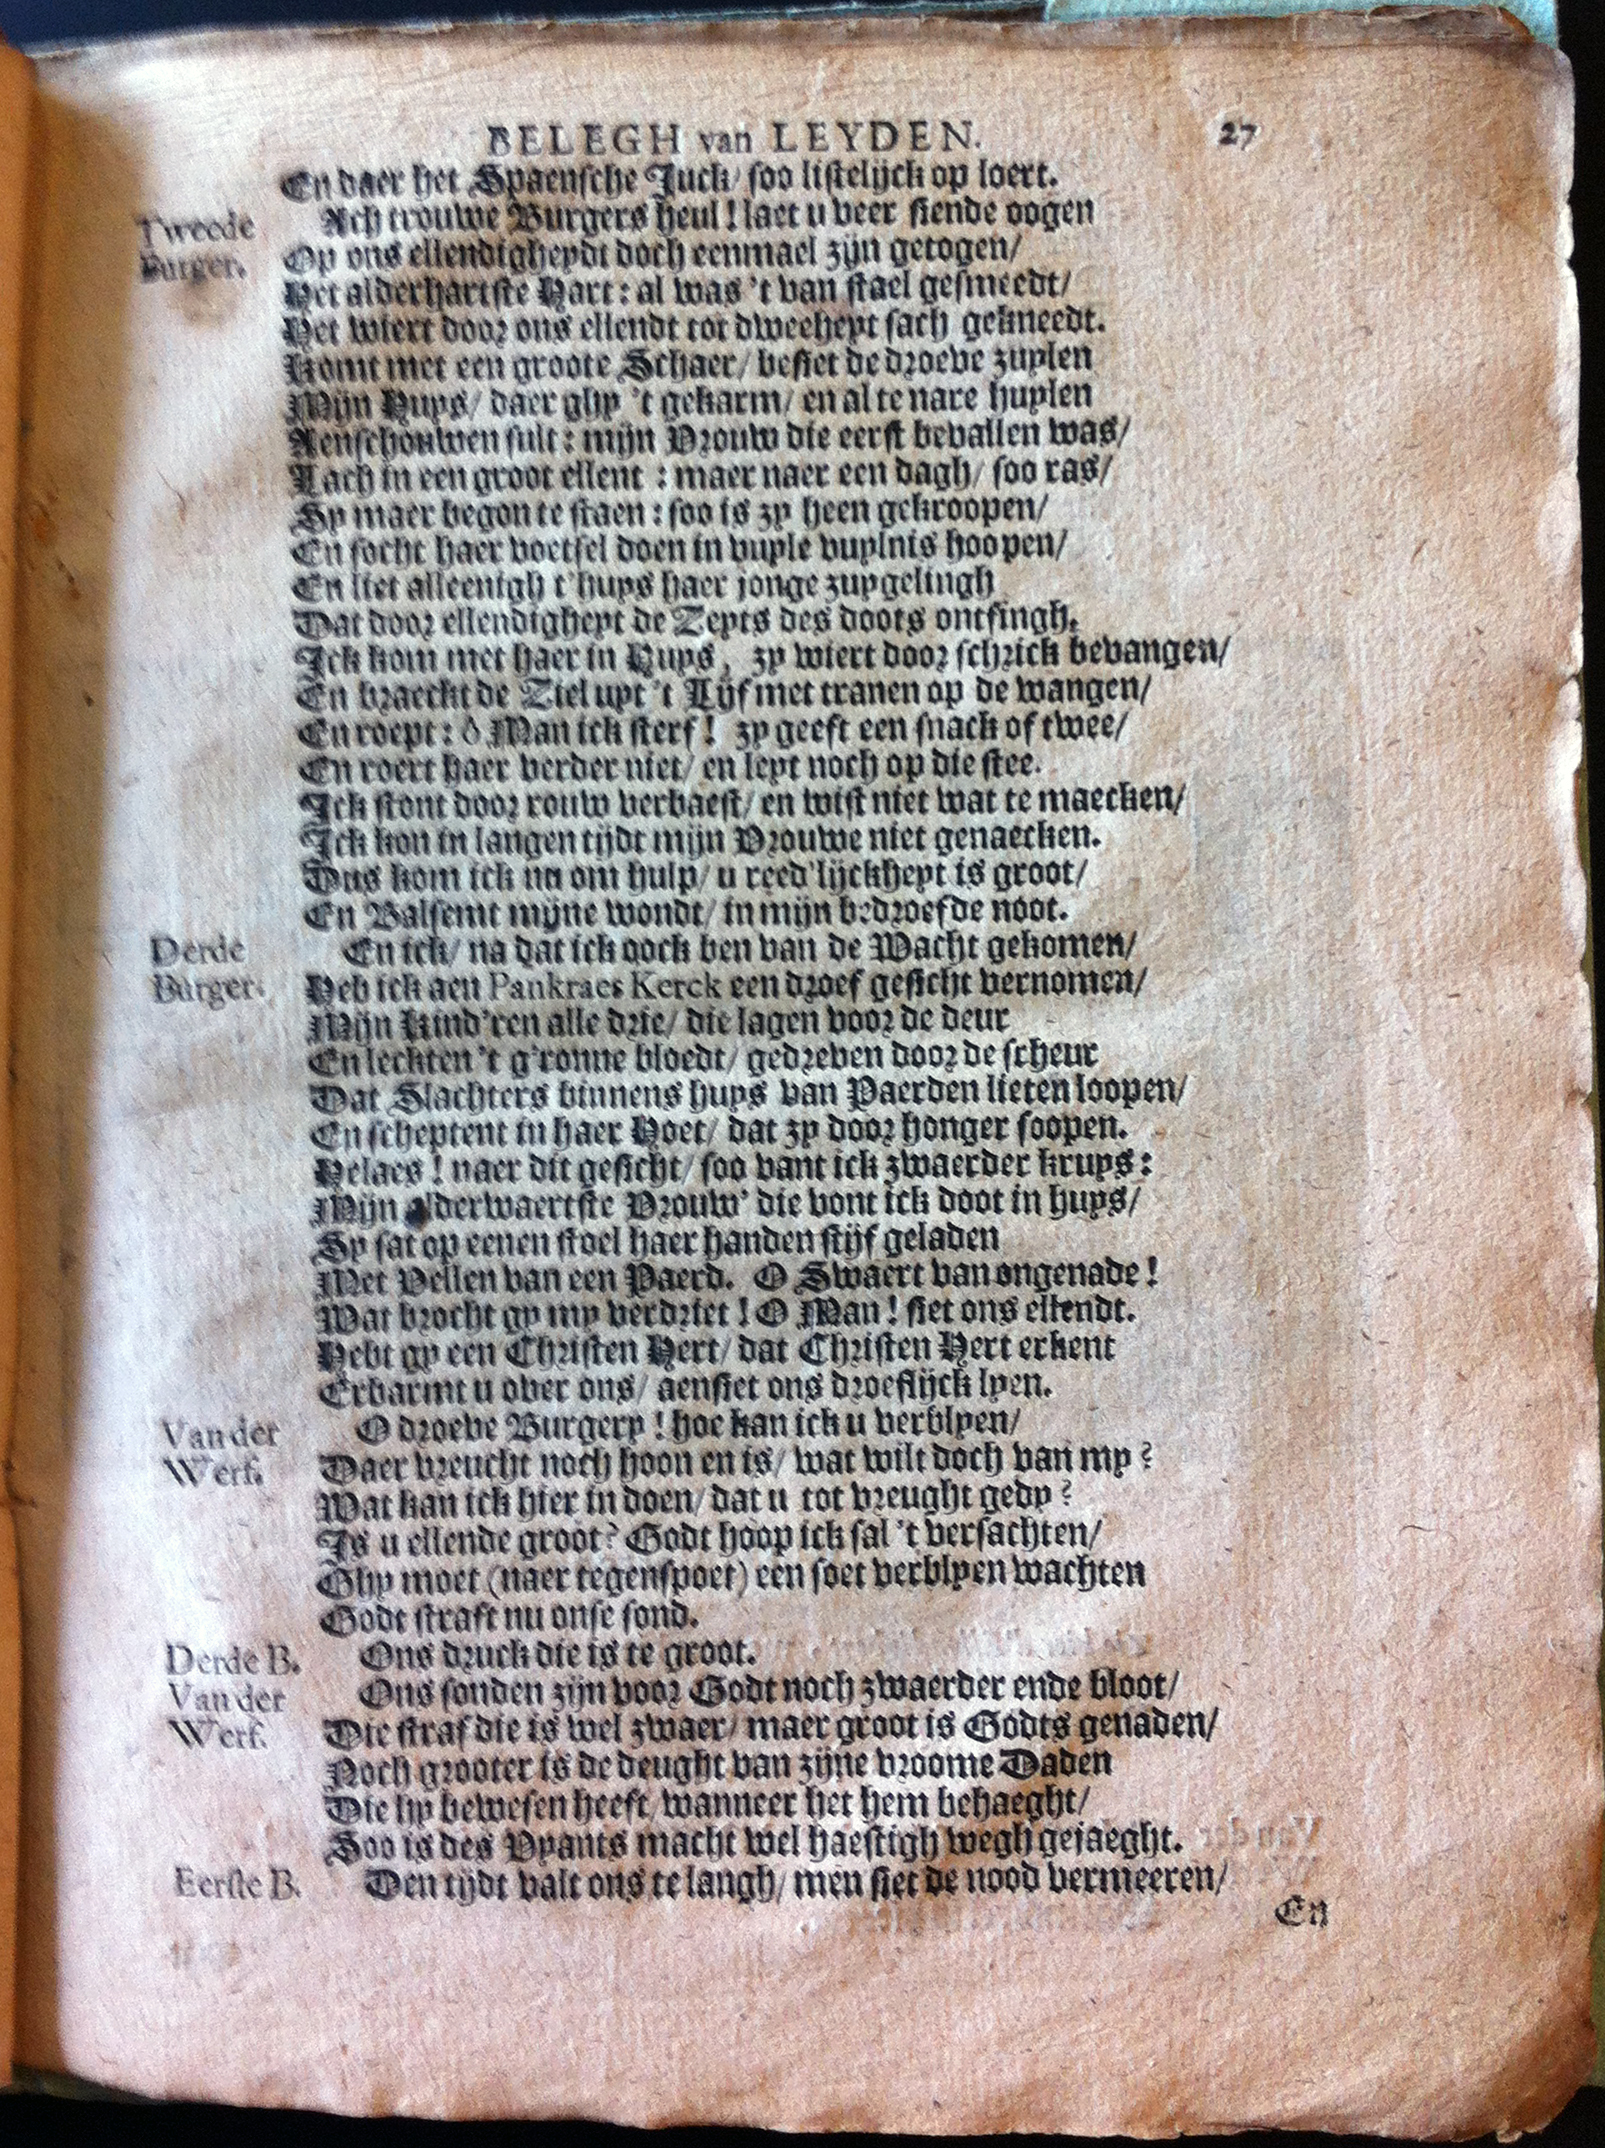 BELEGH van LEYDEN. 27
En daer het Spaensche Juck/ soo listelijck op loert.
Tweede Burger. Ach trouwe Burgers heul! laet u veer siende oogen
Op ons ellendigheydt doch eenmael zijn getogen/
Het alderhartste Hart: al was 't van stael gesmeedt/
Het wiert door ons ellendt tot dweeheyt sach gekneedt.
Komt met een groote Schaer/ besiet de droeve zuylen
Mijn Huys/ daer ghy 't gekarm/ en al te nare huylen
Aenschouwen sult: mijn Vrouw die eerst bevallen was/
Lach in een groot ellent: maer naer een dagh/ soo ras/
Sy maer begon te staen: soo is zy heen gekroopen/
En socht haer voetsel doen in vuyle vuylnis hoopen/
En liet alleenigh t'huys haer jonge zuygelingh
Dat door ellendigheyt de Zeyts des doots ontfingh.
Ick kom met haer in Huys, zy wiert door schrick bevangen/
En braeckt de Ziel uyt 't Lijf met tranen op de wangen/
En roept: ô Man ick sterf! zy geeft een snack of twee/
En roert haer verder niet/ en leyt noch op die stee.
Ick stont door rouw verbaest/ en wist niet wat te maecken/
Ick kon in langen tijdt mijn Vrouwe niet genaecken.
Dus kom ick nu om hulp/ u reed'lijckheyt is groot/
En Balsemt mijne wondt/ in mijn bedroefde noot.
Derde Burger. En ick/ na dat ick oock ben van de Wacht gekomen/
Heb ick aen Pankraes Kerck een droef gesicht vernomen/
Mijn Kind'ren alle drie/ die lagen voor de deur
En leckten 't g'ronne bloedt/ gedreven door de scheur
Dat Slachters binnens huys van Paerden lieten loopen/
En scheptent in haer Hoet/ dat zy door honger soopen.
Helaes! naer dit gesicht/ soo vant ick zwaerder kruys:
Mijn alderwaertste Vrouw' die vont ick doot in huys/
Sy sat op eenen stoel haer handen stijf geladen
Met Vellen van een Paerd. O Swaert van ongenade!
Wat brocht gy my verdriet! O Man! siet ons ellendt.
Hebt gy een Christen Hert/ dat Christen Hert erkent
Erbarmt u over ons/ aensiet ons droeflijck lyen.
Van der Werf. O droeve Burgery! hoe kan ick u verblyen/
Daer vreucht noch hoon en is/ wat wilt doch van my?
Wat kan ick hier in doen/ dat u tot vreught gedy?
Is u ellende groot? Godt hoop ick sal 't versachten/
Ghy moet (naer tegenspoet) een soet verblyen wachten
Godt straft nu onse sond.
Derde B. Ons druck die is te groot.
Van der Werf. Ons sonden zijn voor Godt noch zwaerder ende bloot/
Die straf die is wel zwaer/ maer groot is Godts genaden/
Noch grooter is de deught van zijne vroome Daden
Die hy bewesen heeft/ wanneer het hem behaeght/
Soo is des Vyants macht wel haestigh wegh gejaeght.
Eerste B. Den tijdt valt ons te langh/ men siet de nood vermeeren/
En